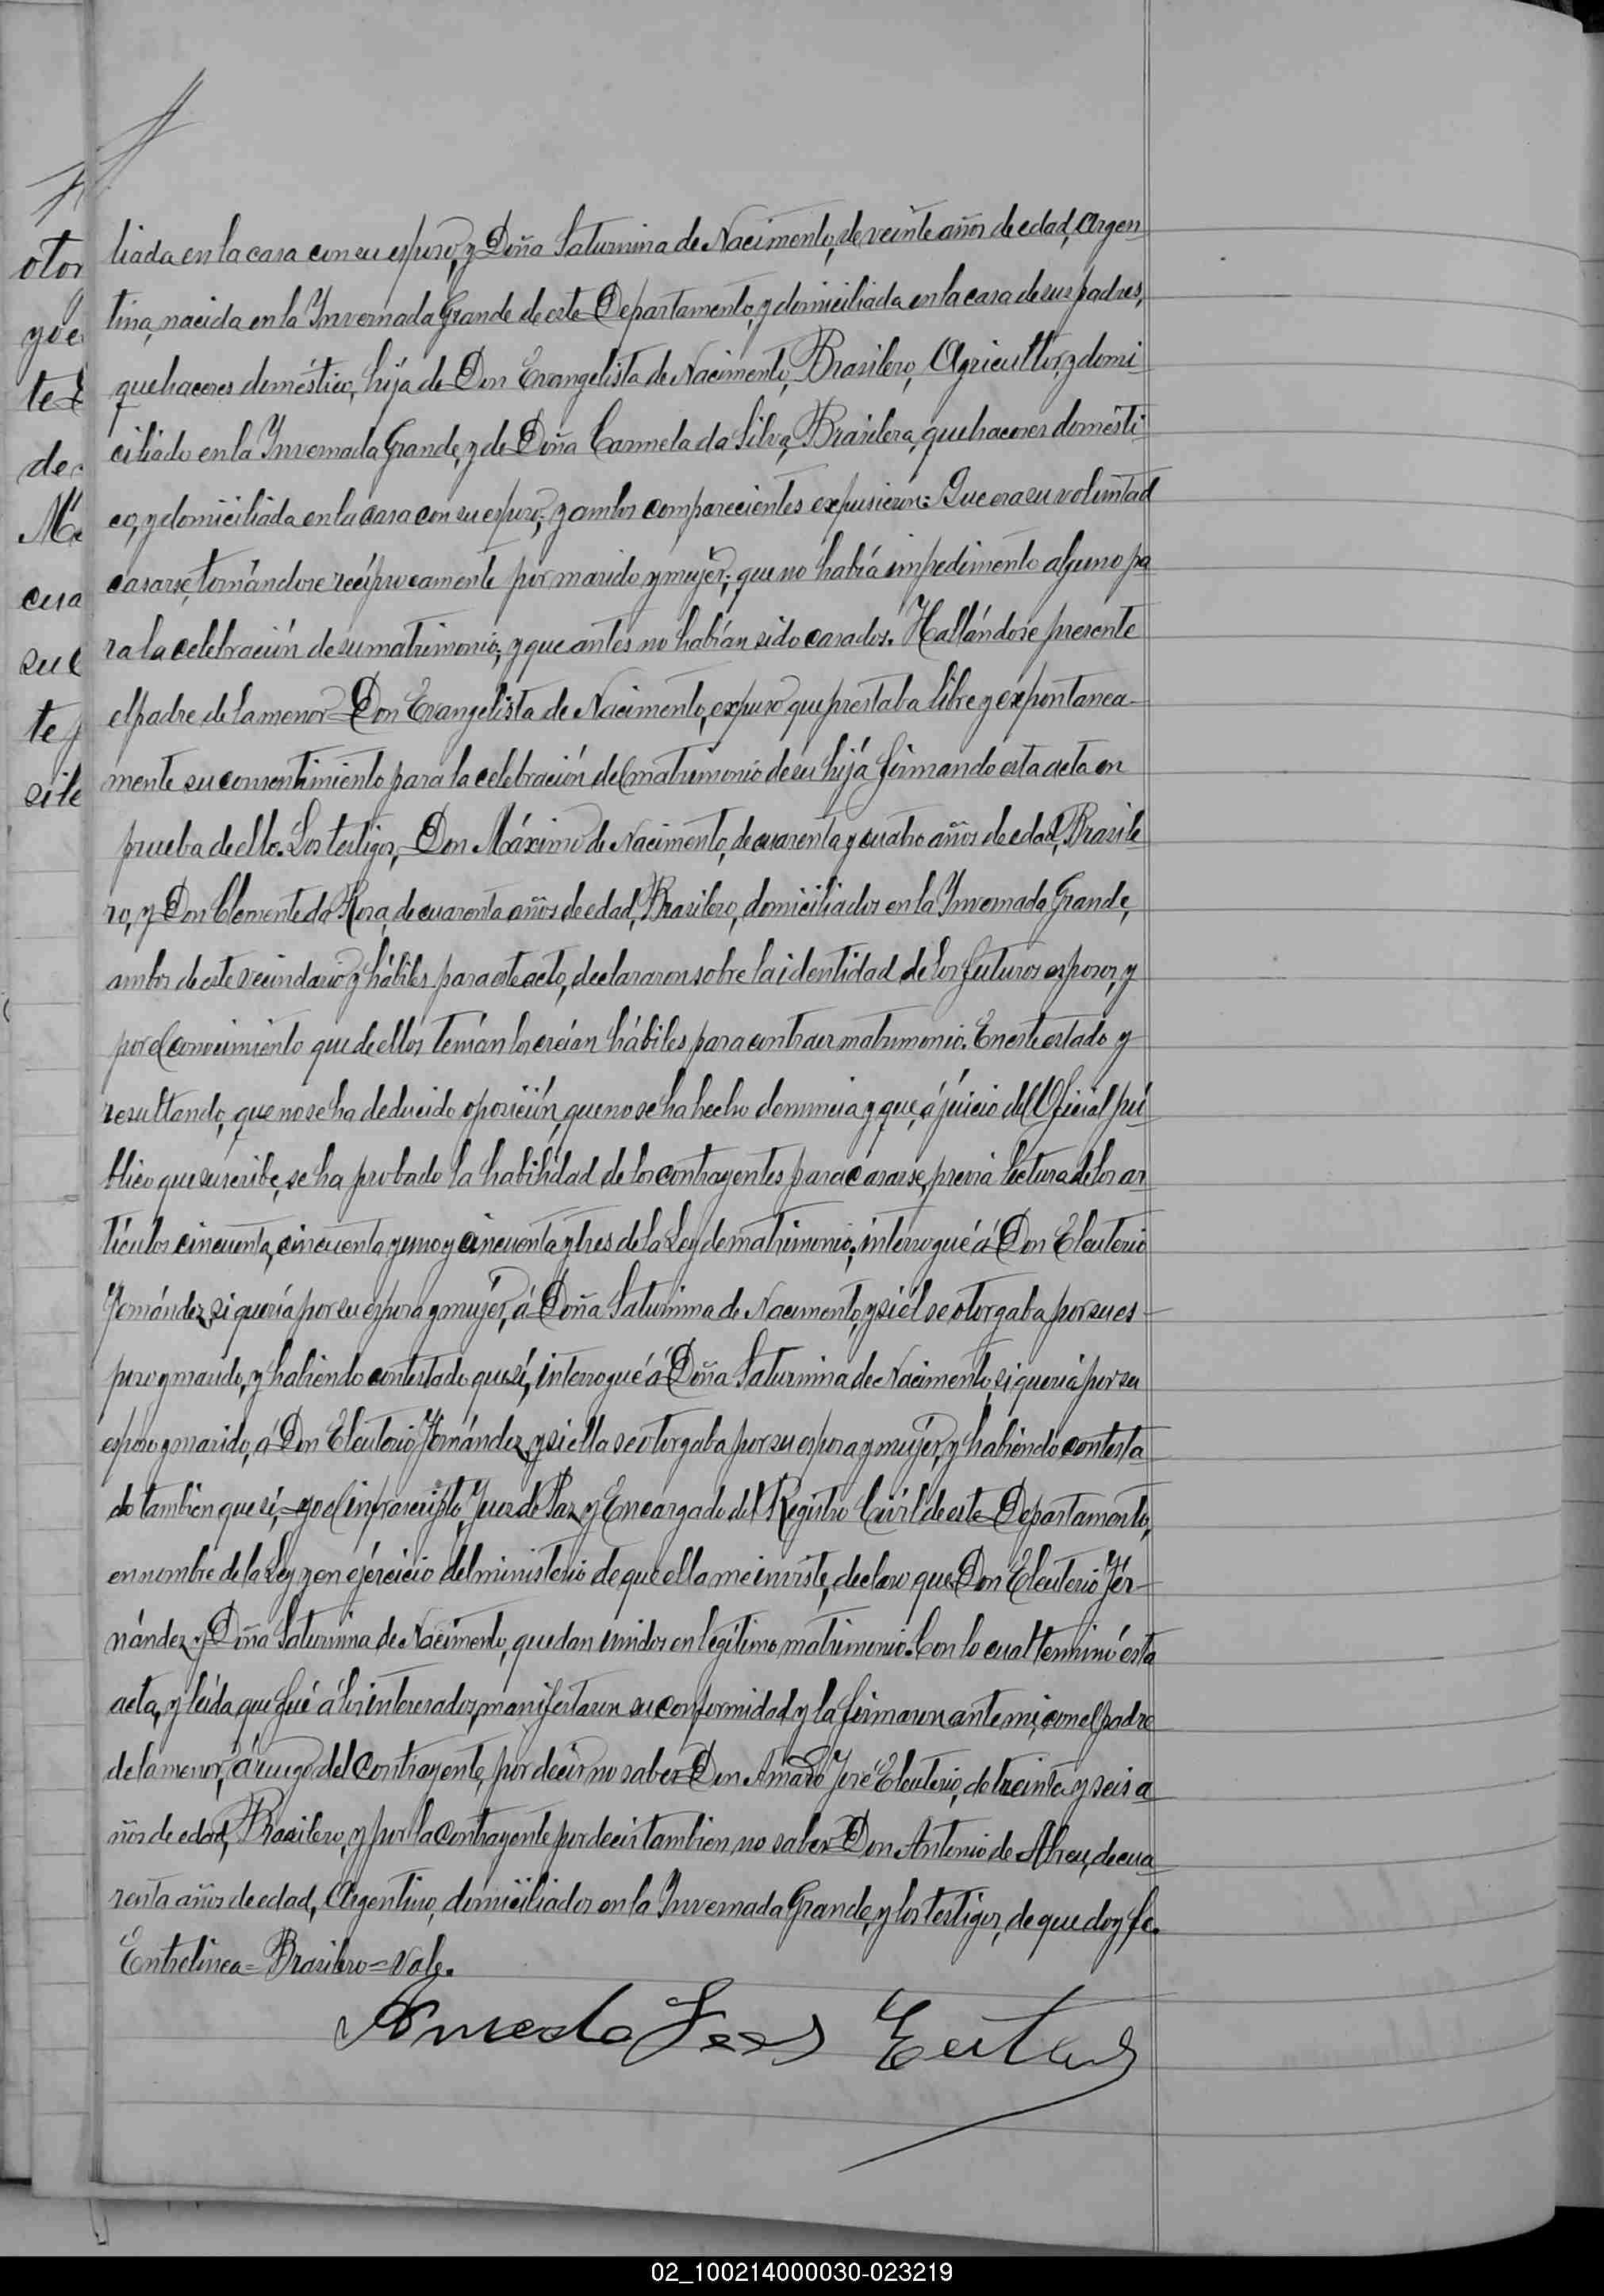 otor
y de
te
de
Ma
cua
su c
te p
sile
liada en la casa con su esposo, y Doña Saturnina de Nacimento, de veinte años de edad, Argen
tina, nacida en la Invernada Grande de este Departamento, y domiciliada en la casa de sus padres,
quehaceres doméstico, hija de Don Evangelista de Nacimento, Brasilero, Agricultor, y domi
ciliado en la Invernada Grande, y de Doña Carmela da Silva, Brasilera, quehaceres domésti
co, y domiciliada en la casa con su esposo; y ambos comparecientes expusieron: Que era su voluntad
casarse, tomándose recíprocamente por marido y mujer; que no había impedimento alguno pa
ra la celebración de su matrimonio; y que antes no habían sido casados. Hallándose presente
el padre de la menor Don Evangelista de Nacimento, expuso que prestaba libre y expontanea-
mente su consentimiento para la celebración del matrimonio de su hija firmando esta acta en
prueba de ello. Los testigos, Don Máximo de Nacimento, de cuarenta y cuatro años de edad, Brasile
ro, y Don Clemente da Rosa, de cuarenta años de edad, Brasilero, domiciliados en la Invernada Grande,
ambos de este vecindario y hábiles para este acto, declararon sobre la identidad de los futuros esposos, y
por el conocimiento que de ellos tenían los creían hábiles para contraer matrimonio. En este estado y
resultando, que no se ha deducido oposición, que no se ha hecho denuncia y que, á juicio del Oficial pú
blico que suscribe, se ha probado la habilidad de los contrayentes para casarse, previa lectura de los ar
tículos cincuenta, cincuenta y uno y cincuenta y tres de la Ley de matrimonio; interrogué á Don Eleuterio
Fernández, si quería por su esposa y mujer, á Doña Saturnina de Nacimento, y si él se otorgaba por su es-
poso y marido, y habiendo contestado que sí, interrogué á Doña Saturnina de Nacimento, si quería por su
esposo y marido, á Don Eleuterio Fernández, y si ella se otorgaba por su esposa y mujer, y habiendo contesta
do tambien que sí, yo el infrascripto, Juez de Paz y Encargado del Registro Civil de este Departamento,
en nombre de la Ley y en ejercicio del ministerio de que ella me inviste, declaro que Don Eleuterio Fer-
nández y Doña Saturnina de Nacimento, quedan unidos en legítimo matrimonio. Con lo cual terminó esta
acta, y leída que fué á los interesados, manifestaron su conformidad y la firmaron ante mi, con el padre
de la menor, á ruego del contrayente, por decir no saber Don Amaro José Eleuterio, de treinta y seis a
ños de edad, Brasilero, y por la contrayente por decir tambien no saber Don Antonio de Abreu, de cua
renta años de edad, Argentino, domiciliados en la Invernada Grande, y los testigos, de que doy fe.
Entrelínea=Brasilero=Vale.
02_100214000030-023219